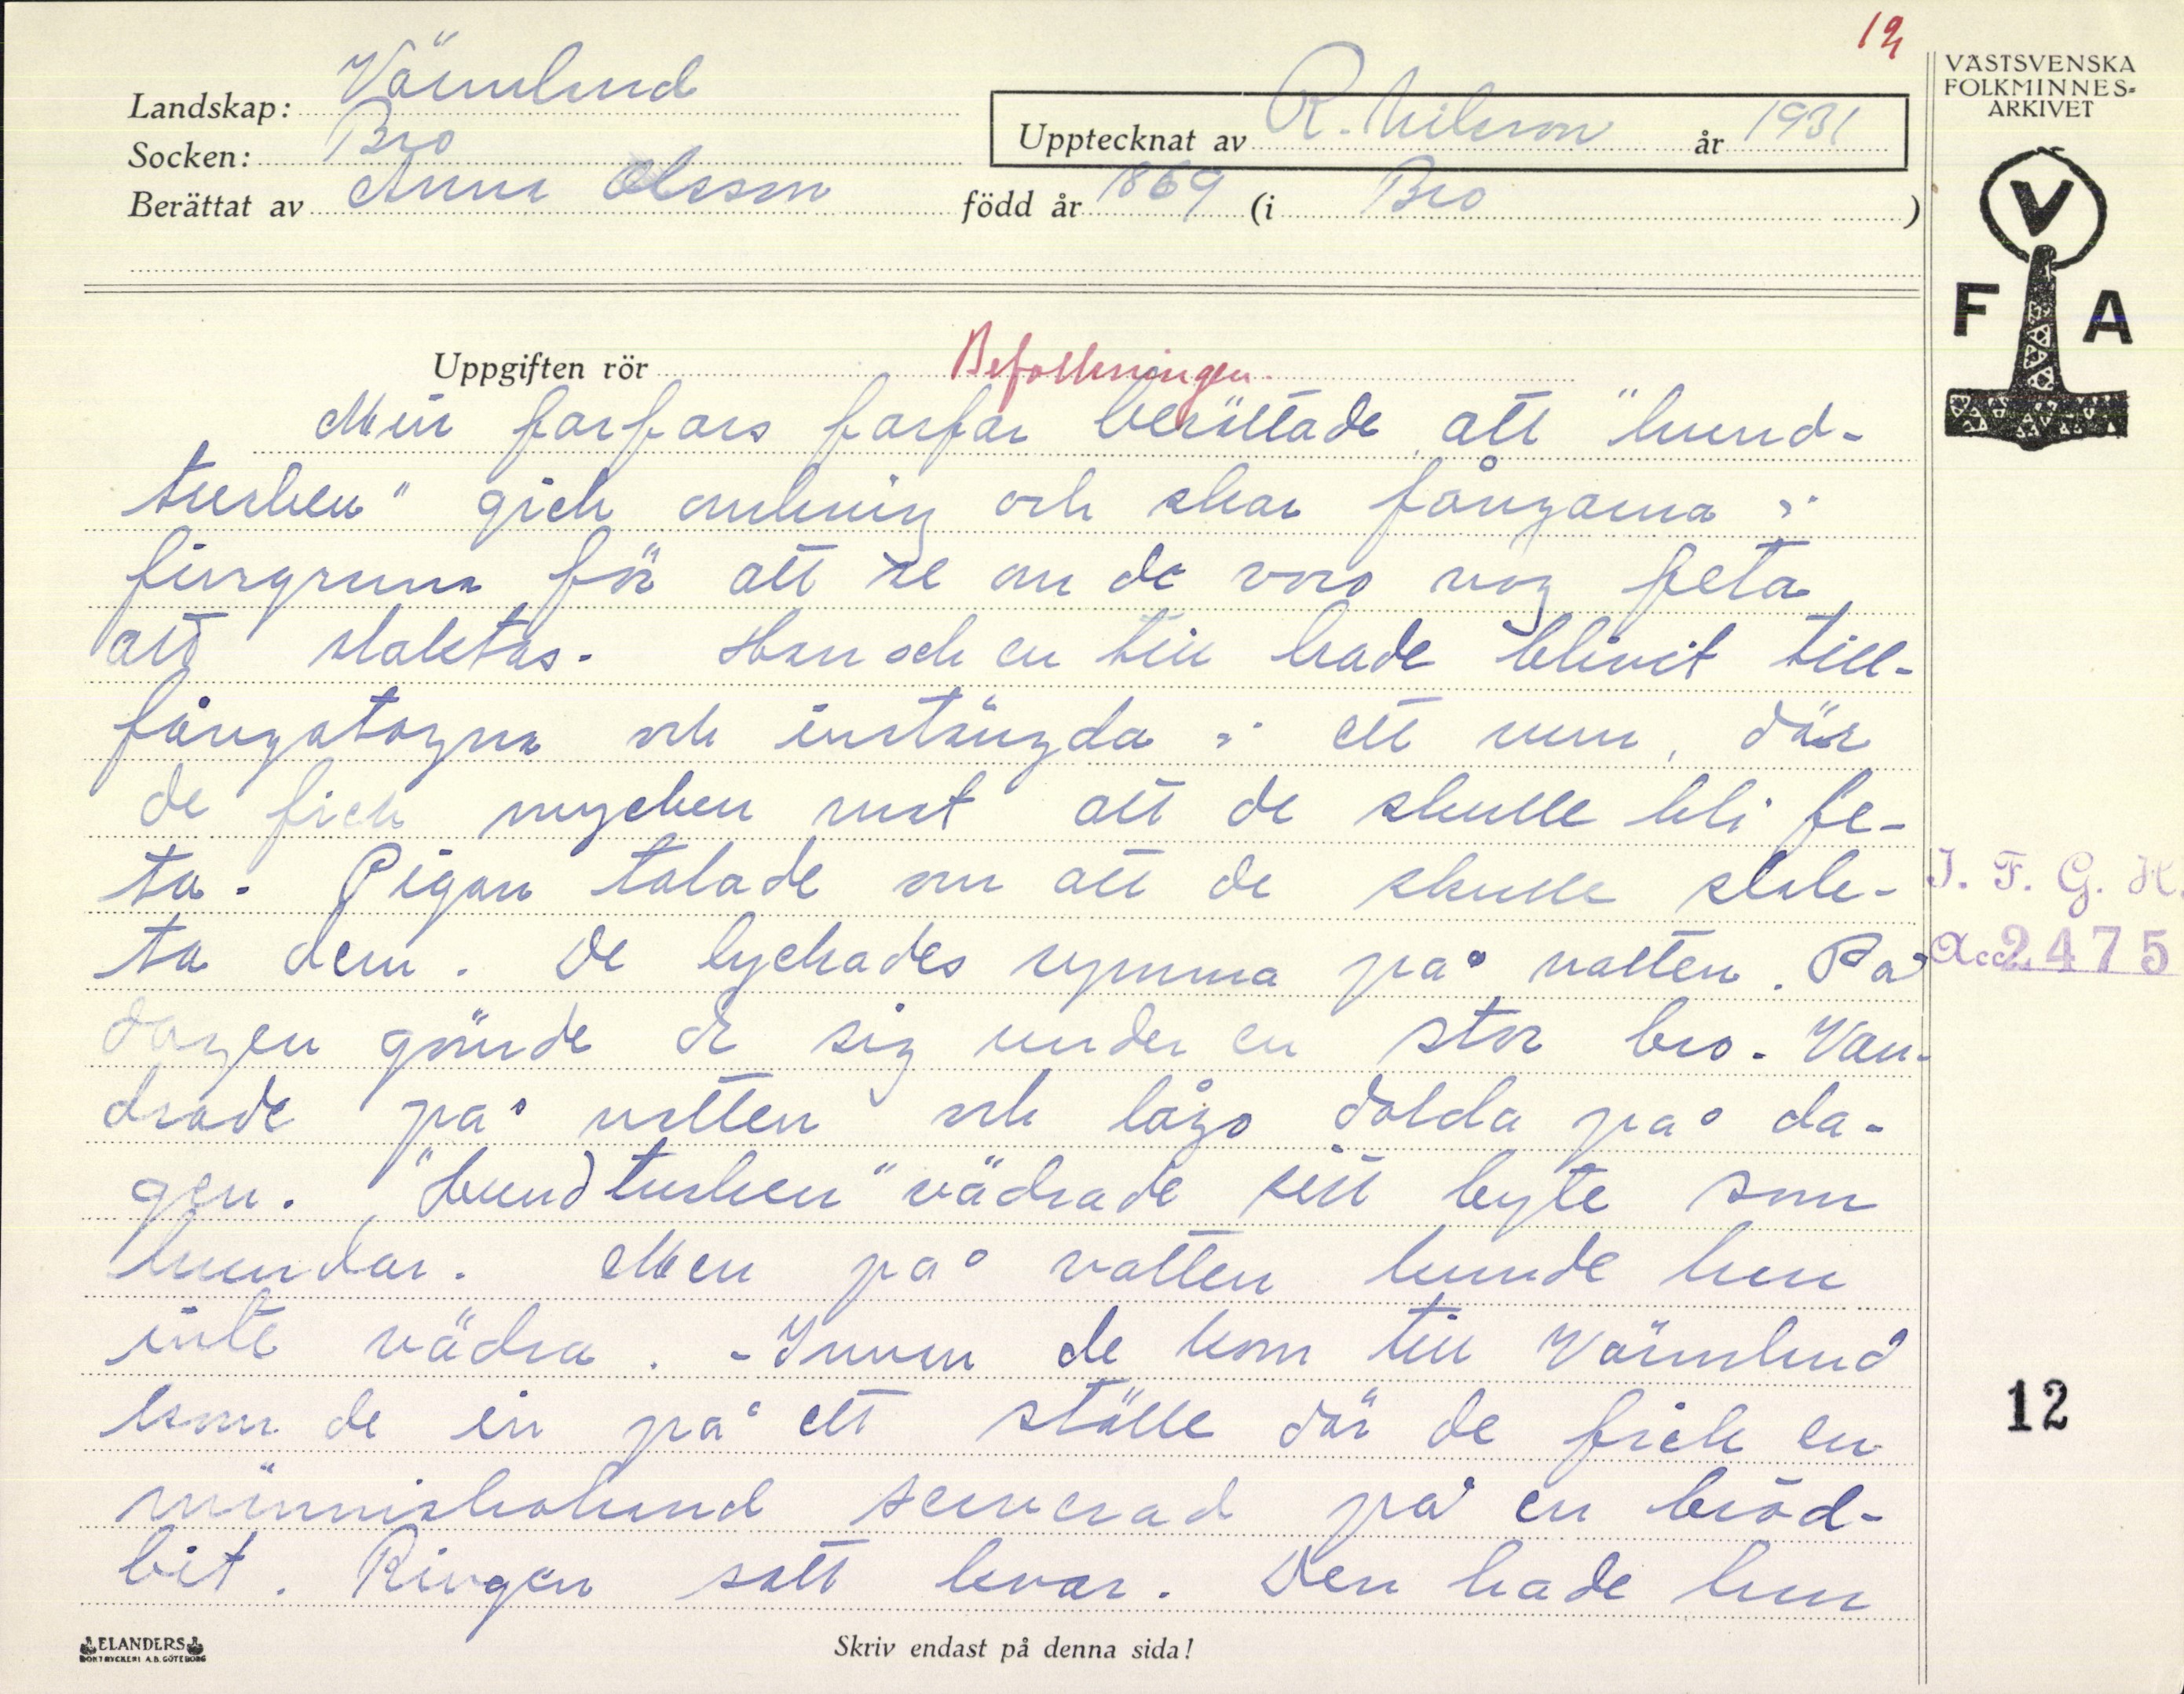 12
VÄSTSVENSKA
FOLKMINNES-
ARKIVET
Landskap: Värmland
Upptecknat av R. Nilsson år 1931
Socken: Bro
Berättat av Anna Olsson född år 1869 (i Bro )
V
F A
Uppgiften rör Befolkningen.
Min farfars farfar berättade att "hund-
turken" gick omkring och skar fångarna i
fingrarna för att se om de voro nog feta
att slaktas. Han och en till hade blivit till-
fångatagna och instängda i ett rum, där
de fick mycken mat att de skulle bli fe-
ta. Pigan talade om att de skulle slak-
ta dem. De lyckades rymma på natten. På
dagen gömde de sig under en stor bro. Van-
drade på natten och lågo dolda på da-
gen. "Hundturken" vädrade sitt byte som
hundar. Men på vatten kunde han
inte vädra. - Innan de kom till Värmland
kom de in på ett ställe där de fick en
människohand serverad på en bröd-
bit. Ringen satt kvar. Den hade han
I. F. G. H.
Acc. 2475
12
ELANDERS
BOKTRYCKERI A.B. GÖTEBORG
Skriv endast på denna sida!